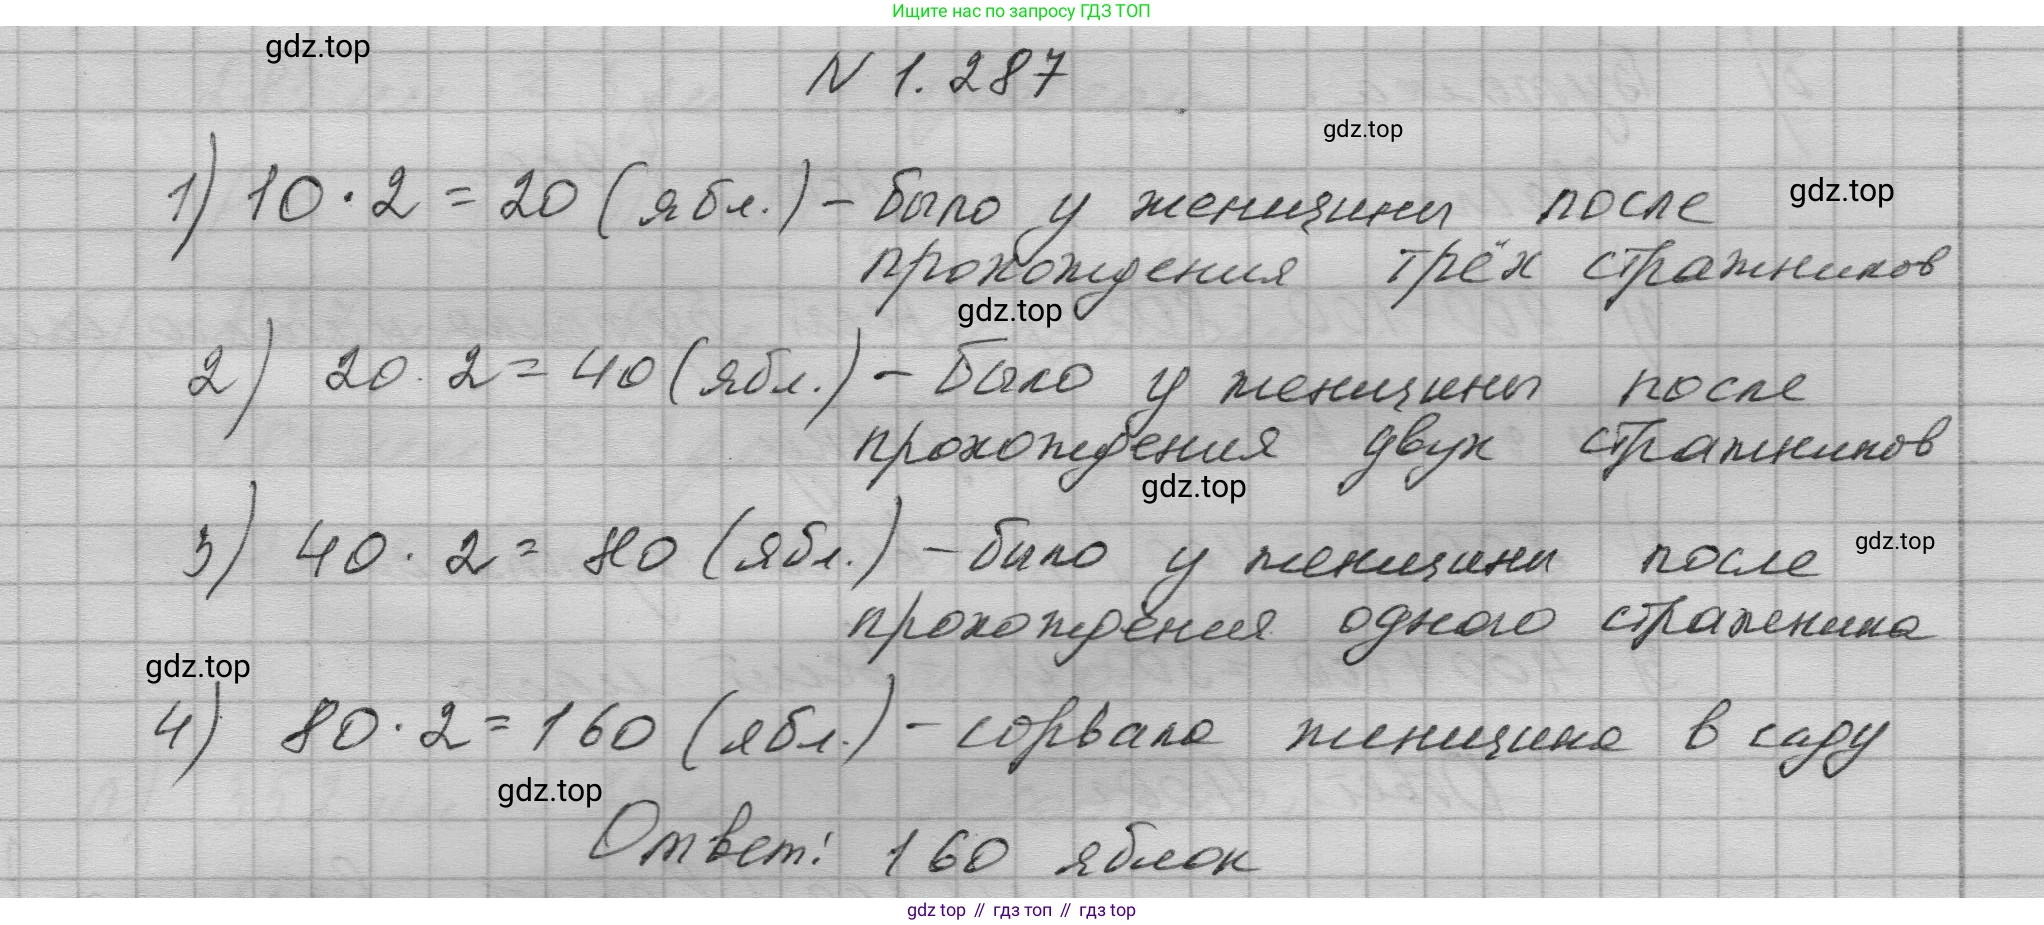 Ищите нас по запросу ГДЗ ТОП
gdz.top
N 1.287
gdz.top
1) 10 · 2 = 20 (ябл.) – было у женщины после
gdz.top
прохождения трёх стражников
gdz.top
2) 20 · 2 = 40 (ябл.) – было у женщины после
прохождения двух стражников
gdz.top
3) 40 · 2 = 80 (ябл.) – было у женщины после
gdz.top
прохождения одного стражника
gdz.top
4) 80 · 2 = 160 (ябл.) – сорвала женщина в саду
gdz.top
Ответ: 160 яблок
gdz top // гдз топ // gdz top